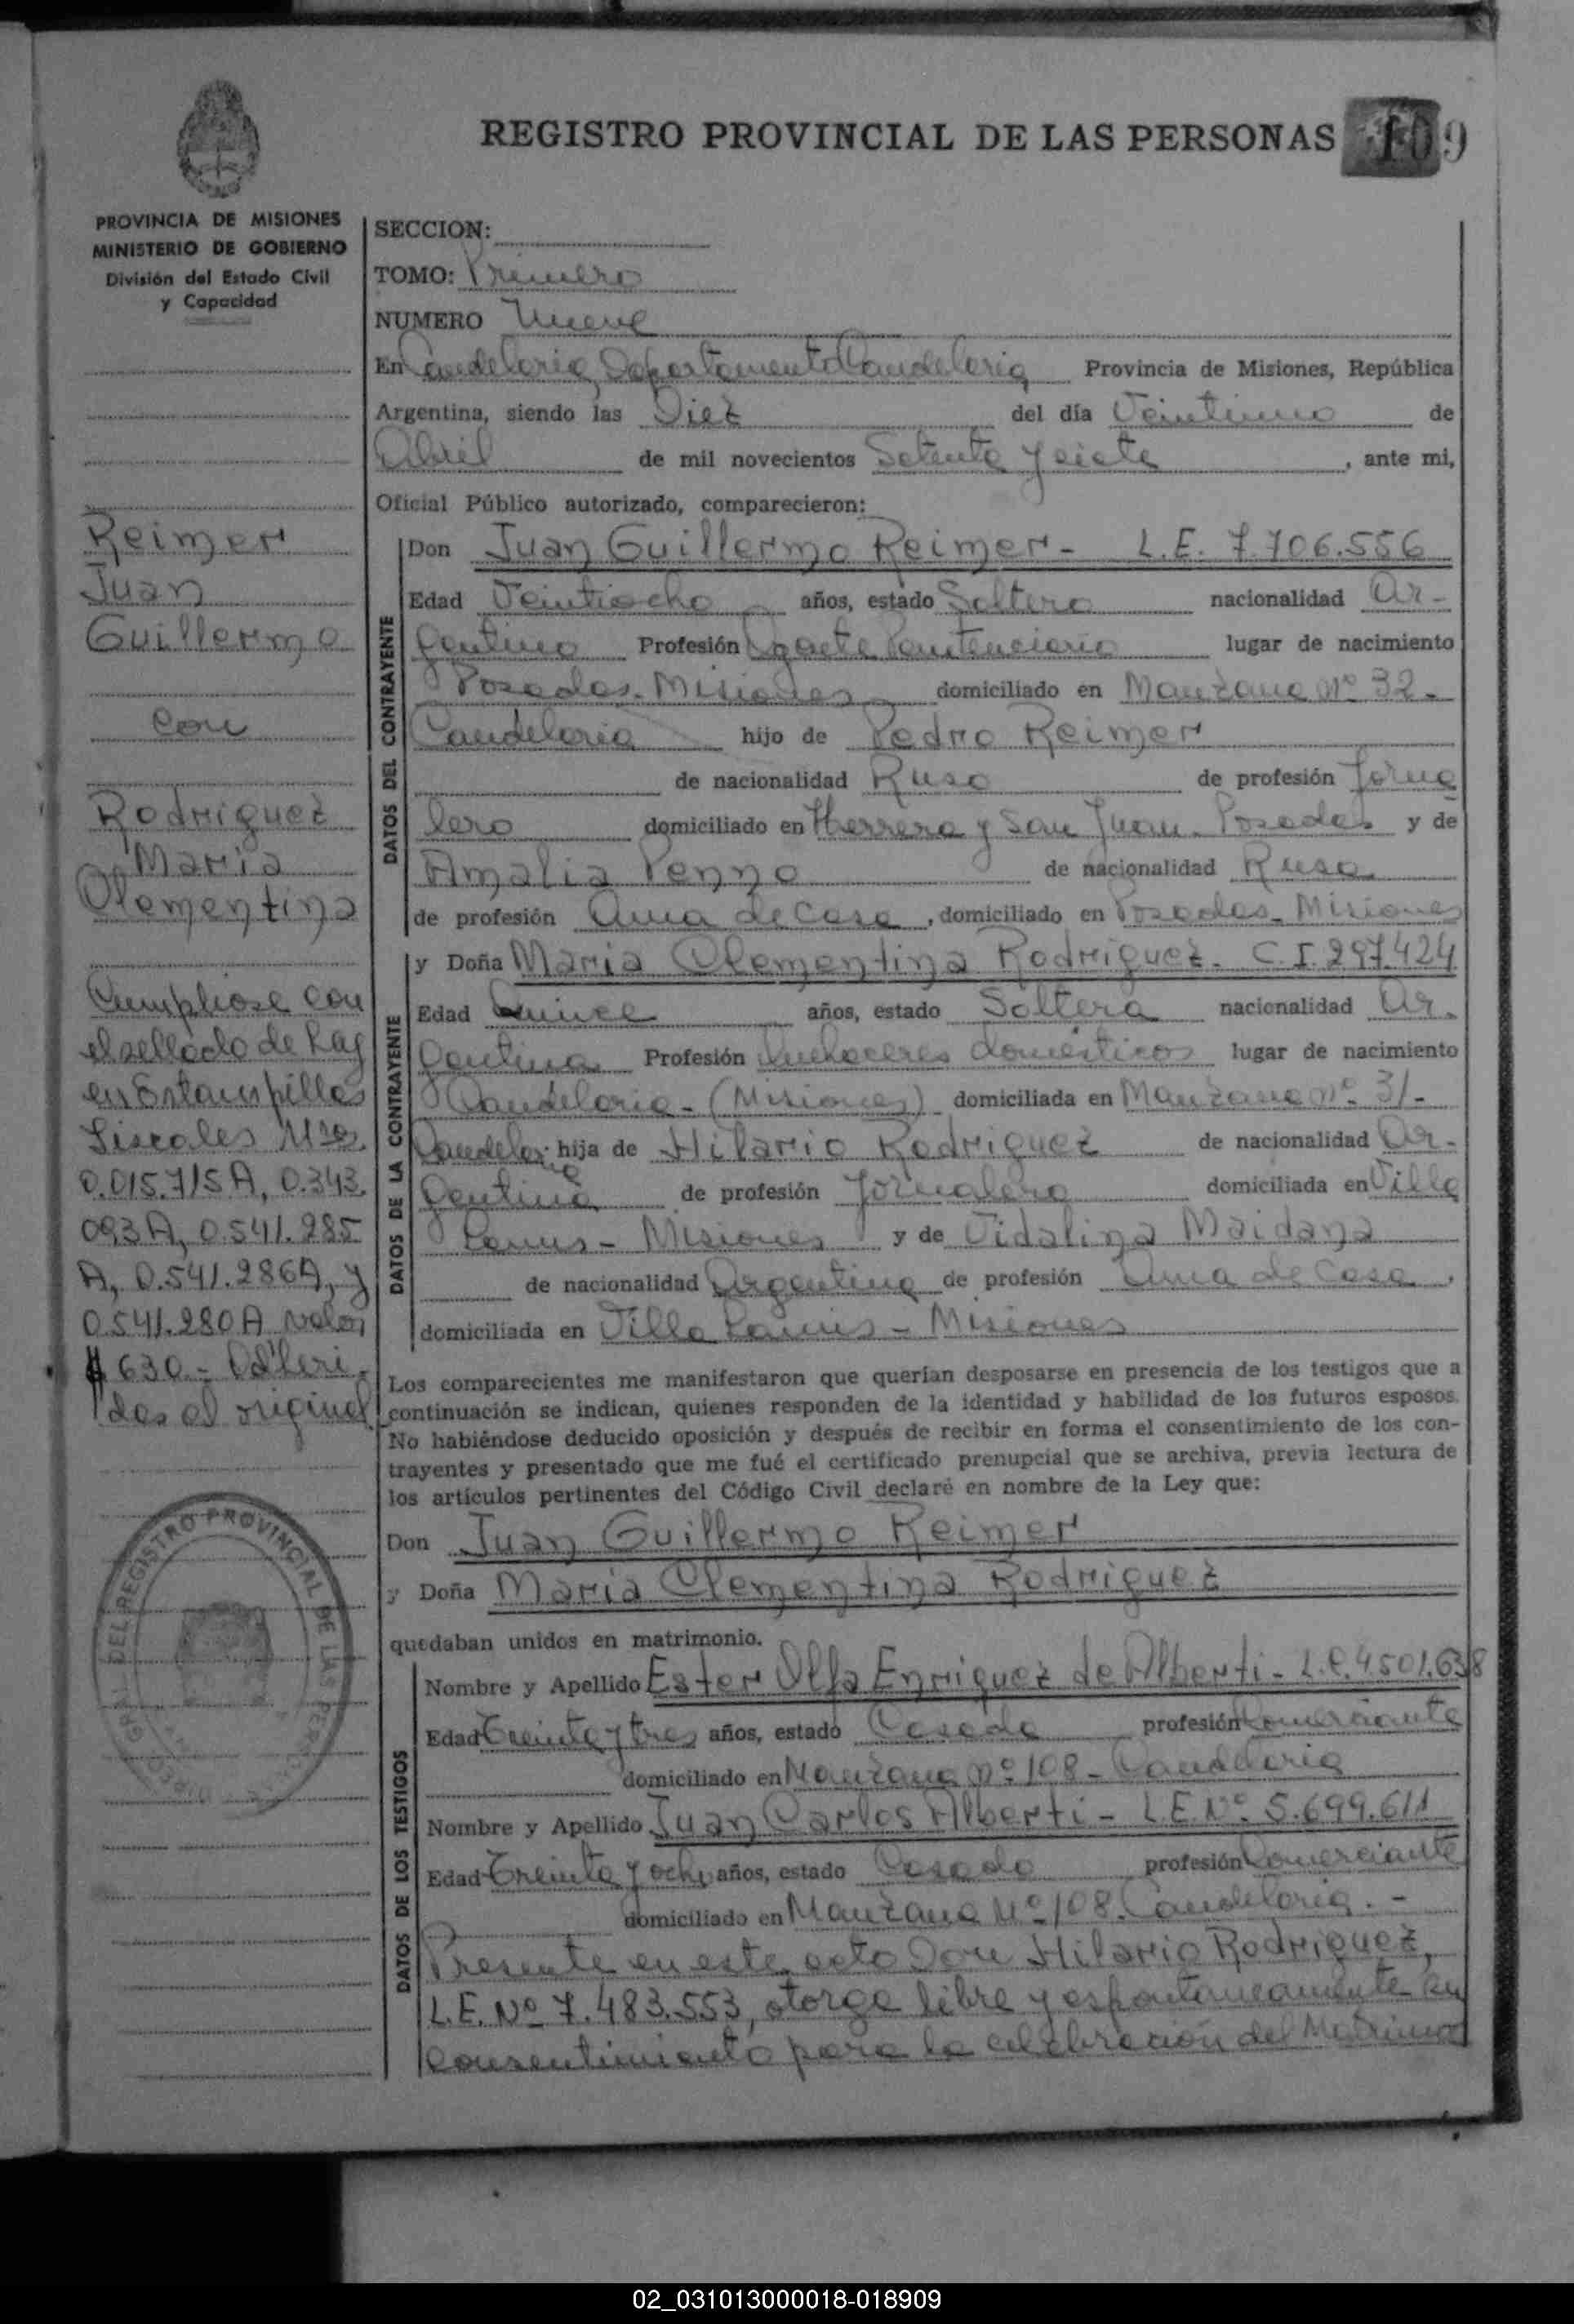 REGISTRO PROVINCIAL DE LAS PERSONAS 109
PROVINCIA DE MISIONES
MINISTERIO DE GOBIERNO
División del Estado Civil
y Capacidad
Reimer
Juan
Guillermo
con
Rodriguez
Maria
Clementina
Cumpliose con
el sellado de Ley
en Estampillas
Fiscales Nros.
0.015.715 A, 0.343.
093 A, 0.541.285
A, 0.541.286 A, y
0.541.280 A valor
$ 630.- Adheri-
das al original
SECCION:
TOMO: Primero
NUMERO Nueve
En Candelaria, Departamento Candelaria Provincia de Misiones, República
Argentina, siendo las Diez del día Veintiuno de
Abril de mil novecientos Setenta y siete, ante mi,
Oficial Público autorizado, comparecieron:
DATOS DEL CONTRAYENTE
Don Juan Guillermo Reimer- L.E. 7.706.556
Edad Veintiocho años, estado Soltero nacionalidad Ar-
gentino Profesión Agente Penitenciario lugar de nacimiento
Posadas- Misiones domiciliado en Manzana Nº 32.
Candelaria hijo de Pedro Reimer
de nacionalidad Ruso de profesión Jorna
lero domiciliado en Herrera y San Juan- Posadas y de
Amalia Penno de nacionalidad Rusa
de profesión Ama de Casa, domiciliado en Posadas- Misiones
DATOS DE LA CONTRAYENTE
y Doña Maria Clementina Rodriguez- C.I. 297.424
Edad Quince años, estado Soltera nacionalidad Ar-
gentina Profesión Quehaceres domésticos lugar de nacimiento
Candelaria- (Misiones) domiciliada en Manzana nº 31-
Candelaria hija de Hilario Rodriguez de nacionalidad Ar-
gentina de profesión Jornalero domiciliada en Villa
Lanus- Misiones y de Vidalina Maidana
de nacionalidad Argentina de profesión Ama de Casa,
domiciliada en Villa Lanus- Misiones
Los comparecientes me manifestaron que querían desposarse en presencia de los testigos que a
continuación se indican, quienes responden de la identidad y habilidad de los futuros esposos.
No habiéndose deducido oposición y después de recibir en forma el consentimiento de los con-
trayentes y presentado que me fué el certificado prenupcial que se archiva, previa lectura de
los artículos pertinentes del Código Civil declaré en nombre de la Ley que:
Don Juan Guillermo Reimer
y Doña Maria Clementina Rodriguez
quedaban unidos en matrimonio.
DATOS DE LOS TESTIGOS
Nombre y Apellido Ester Olfa Enriquez de Alberti- L.C. 4.501.638
Edad Treinta y tres años, estado Casada profesión Comerciante
domiciliado en Manzana nº 108- Candelaria
Nombre y Apellido Juan Carlos Alberti- L.E. Nº 5.699.611
Edad Treinta y ocho años, estado Casado profesión Comerciante
domiciliado en Manzana Nº 108. Candelaria.-
Presente en este acto Don Hilario Rodriguez,
L.E. Nº 7.483.553, otorga libre y espontaneamente su
consentimiento para la celebración del Matrimo
REGISTRO PROVINCIAL DE LAS
02_031013000018-018909